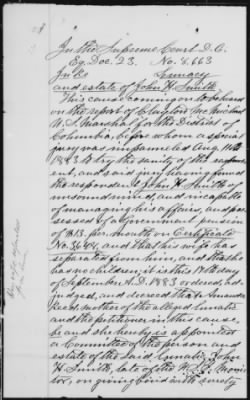 In the Supreme Court D.C.
Eq. Doc. 23. No. 8,663
In re Lunacy
and estate of John H. Smith.
This cause coming on to be heard
on the report of Clayton McMichael
U.S. Marshal for the District of
Columbia, before whom a special
jury was impaneled Aug. 11th
1883 to try the sanity of the respond-
ent, and said jury having found
the respondent John H. Smith of
unsound mind, and incapable
of managing his affairs, and pos-
sessed of a Government pension
of $13. per month on Certificate
No. and that his wife has
separated from him, and that he
has no children; it is this 17th day
of September A.D. 1883 ordered, ad-
judged, and decreed that Amanda
mother of the alleged lunatic
and the petitioner in this cause,
be and she hereby is appointed
a Committee of the person and
estate of the said lunatic John
H. Smith, late of the U.S.S. Moni-
tor, on giving bond with surety